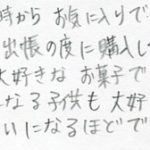 時から お気に入りで
出張の度に購入し
大好きな お菓子で
なる子供も 大好
いになるほどで